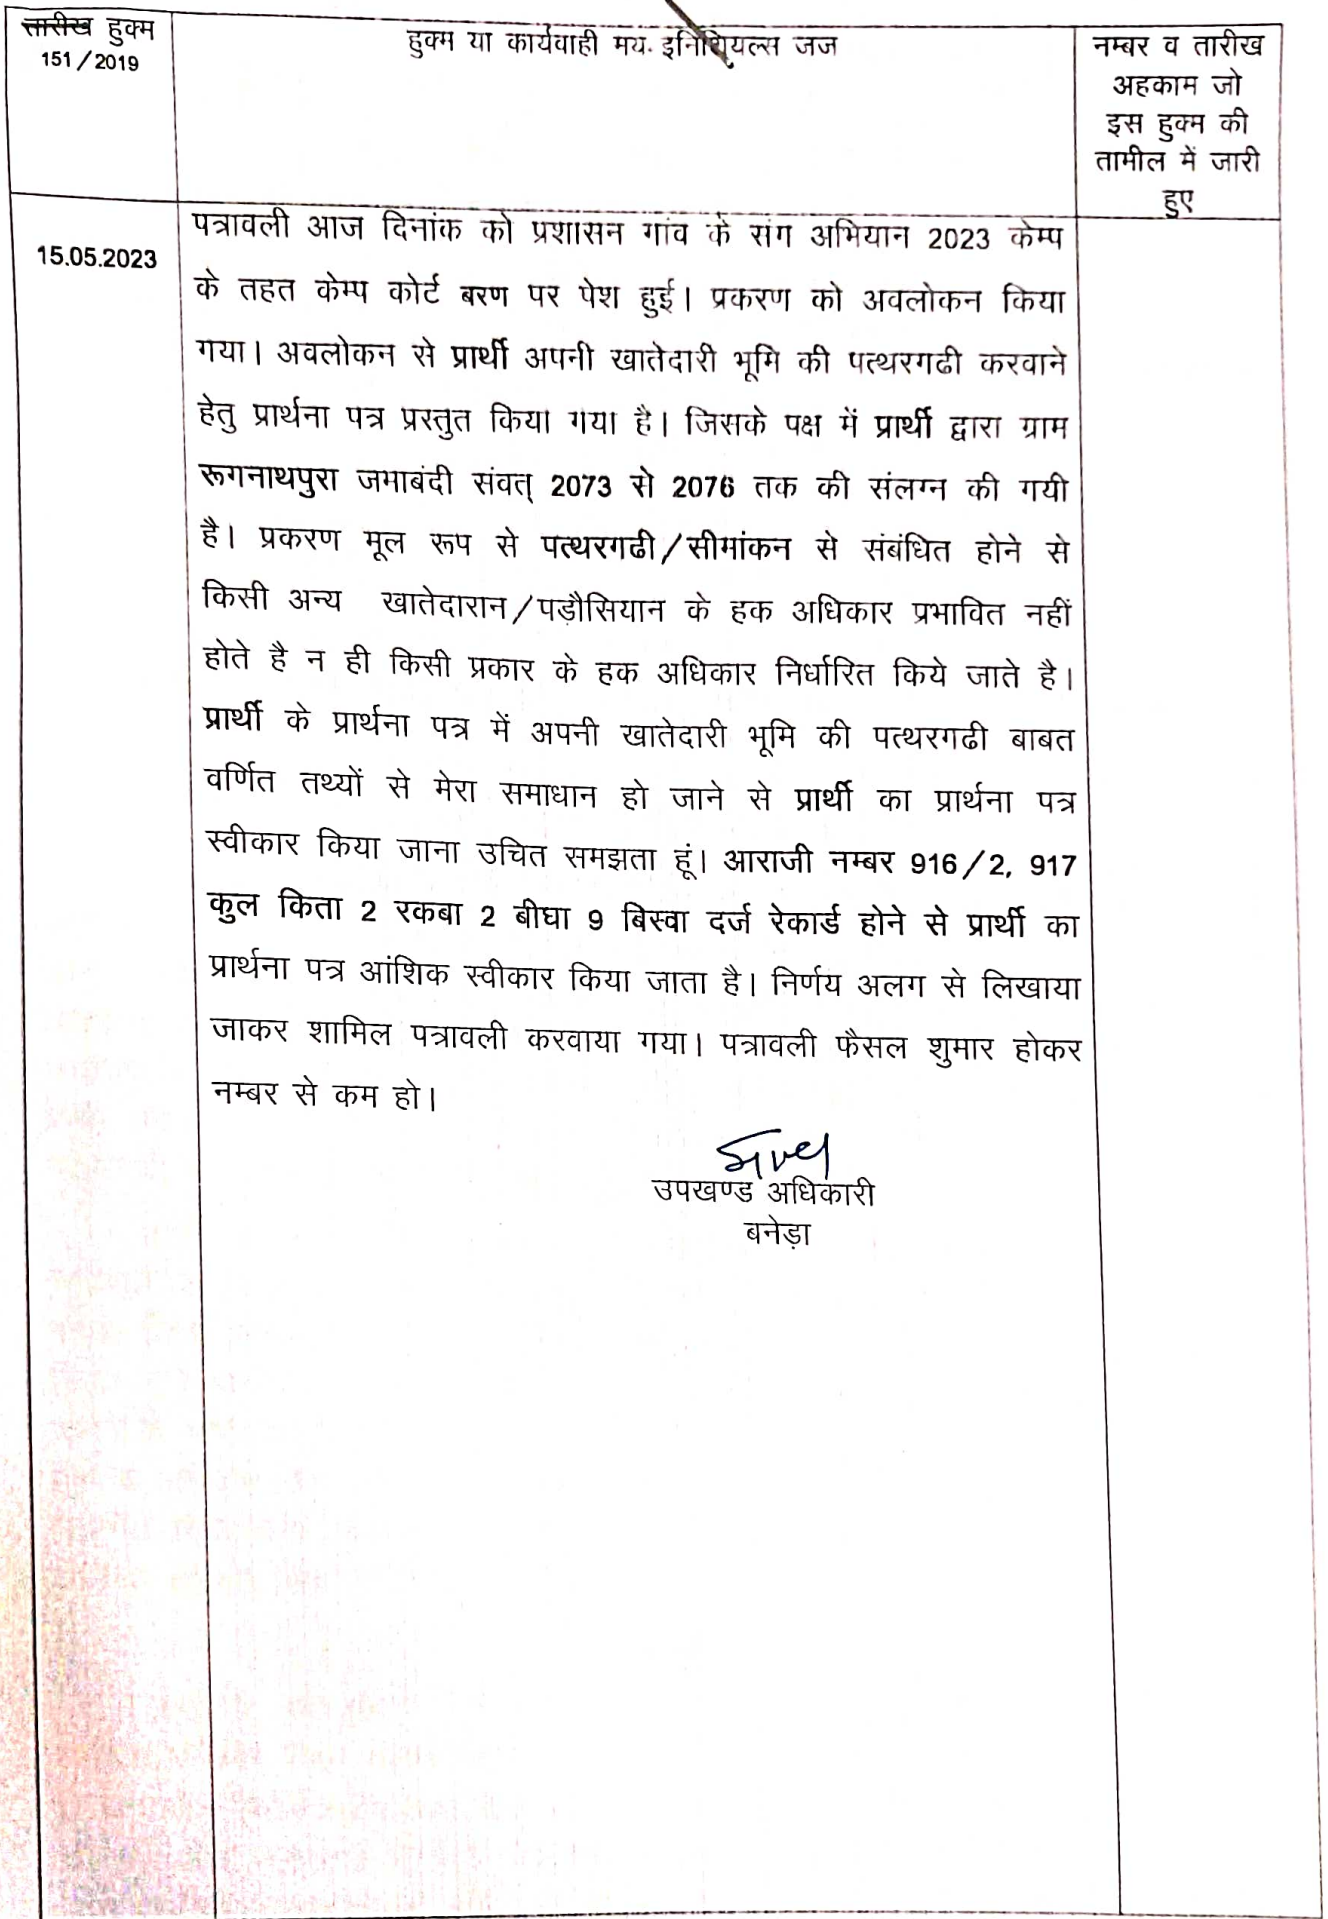 तारीख हुक्म
151/2019
हुक्म या कार्यवाही मय. इनिशियल्स जज
नम्बर व तारीख
अहकाम जो
इस हुक्म की
तामील में जारी
हुए
15.05.2023
पत्रावली आज दिनांक को प्रशासन गांव के संग अभियान 2023 केम्प
के तहत केम्प कोर्ट बरण पर पेश हुई। प्रकरण को अवलोकन किया
गया। अवलोकन से प्रार्थी अपनी खातेदारी भूमि की पत्थरगढी करवाने
हेतु प्रार्थना पत्र प्रस्तुत किया गया है। जिसके पक्ष में प्रार्थी द्वारा ग्राम
रूगनाथपुरा जमाबंदी संवत् 2073 से 2076 तक की संलग्न की गयी
है। प्रकरण मूल रूप से पत्थरगढी/सीमांकन से संबंधित होने से
किसी अन्य खातेदारान/पड़ौसियान के हक अधिकार प्रभावित नहीं
होते है न ही किसी प्रकार के हक अधिकार निर्धारित किये जाते है।
प्रार्थी के प्रार्थना पत्र में अपनी खातेदारी भूमि की पत्थरगढी बाबत
वर्णित तथ्यों से मेरा समाधान हो जाने से प्रार्थी का प्रार्थना पत्र
स्वीकार किया जाना उचित समझता हूं। आराजी नम्बर 916/2, 917
कुल किता 2 रकबा 2 बीघा 9 बिस्वा दर्ज रेकार्ड होने से प्रार्थी का
प्रार्थना पत्र आंशिक स्वीकार किया जाता है। निर्णय अलग से लिखाया
जाकर शामिल पत्रावली करवाया गया। पत्रावली फैसल शुमार होकर
नम्बर से कम हो।
उपखण्ड अधिकारी
बनेड़ा